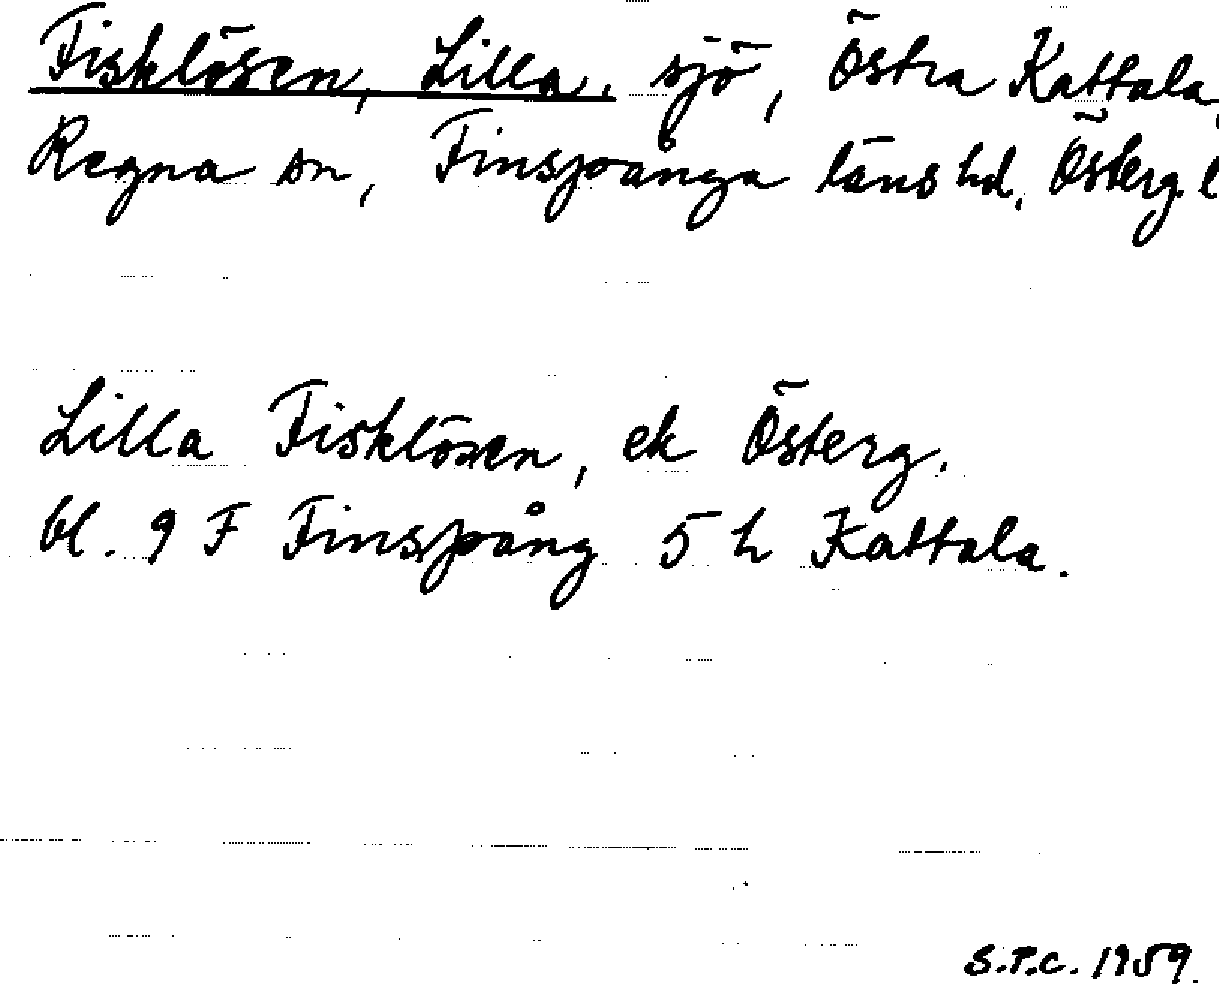 Fisklösen, Lilla, sjö, Östra Kattala,
Regna sn, Finspånga läns hd, Österg. l
Lilla Fisklösen, ek Österg.
bl. 9 F Finspång 5 h Kattala.
S.T.C. 1959.